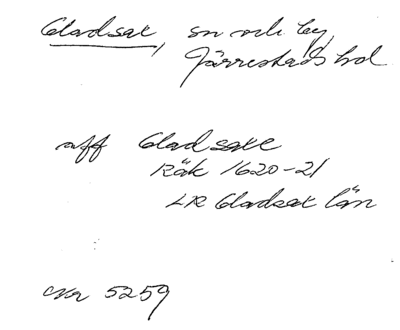 Gladsax, sn och by,
Järrestads hd
aff Gladsaxe
Räk 1620-21
LR Gladsax län
Nr 5259